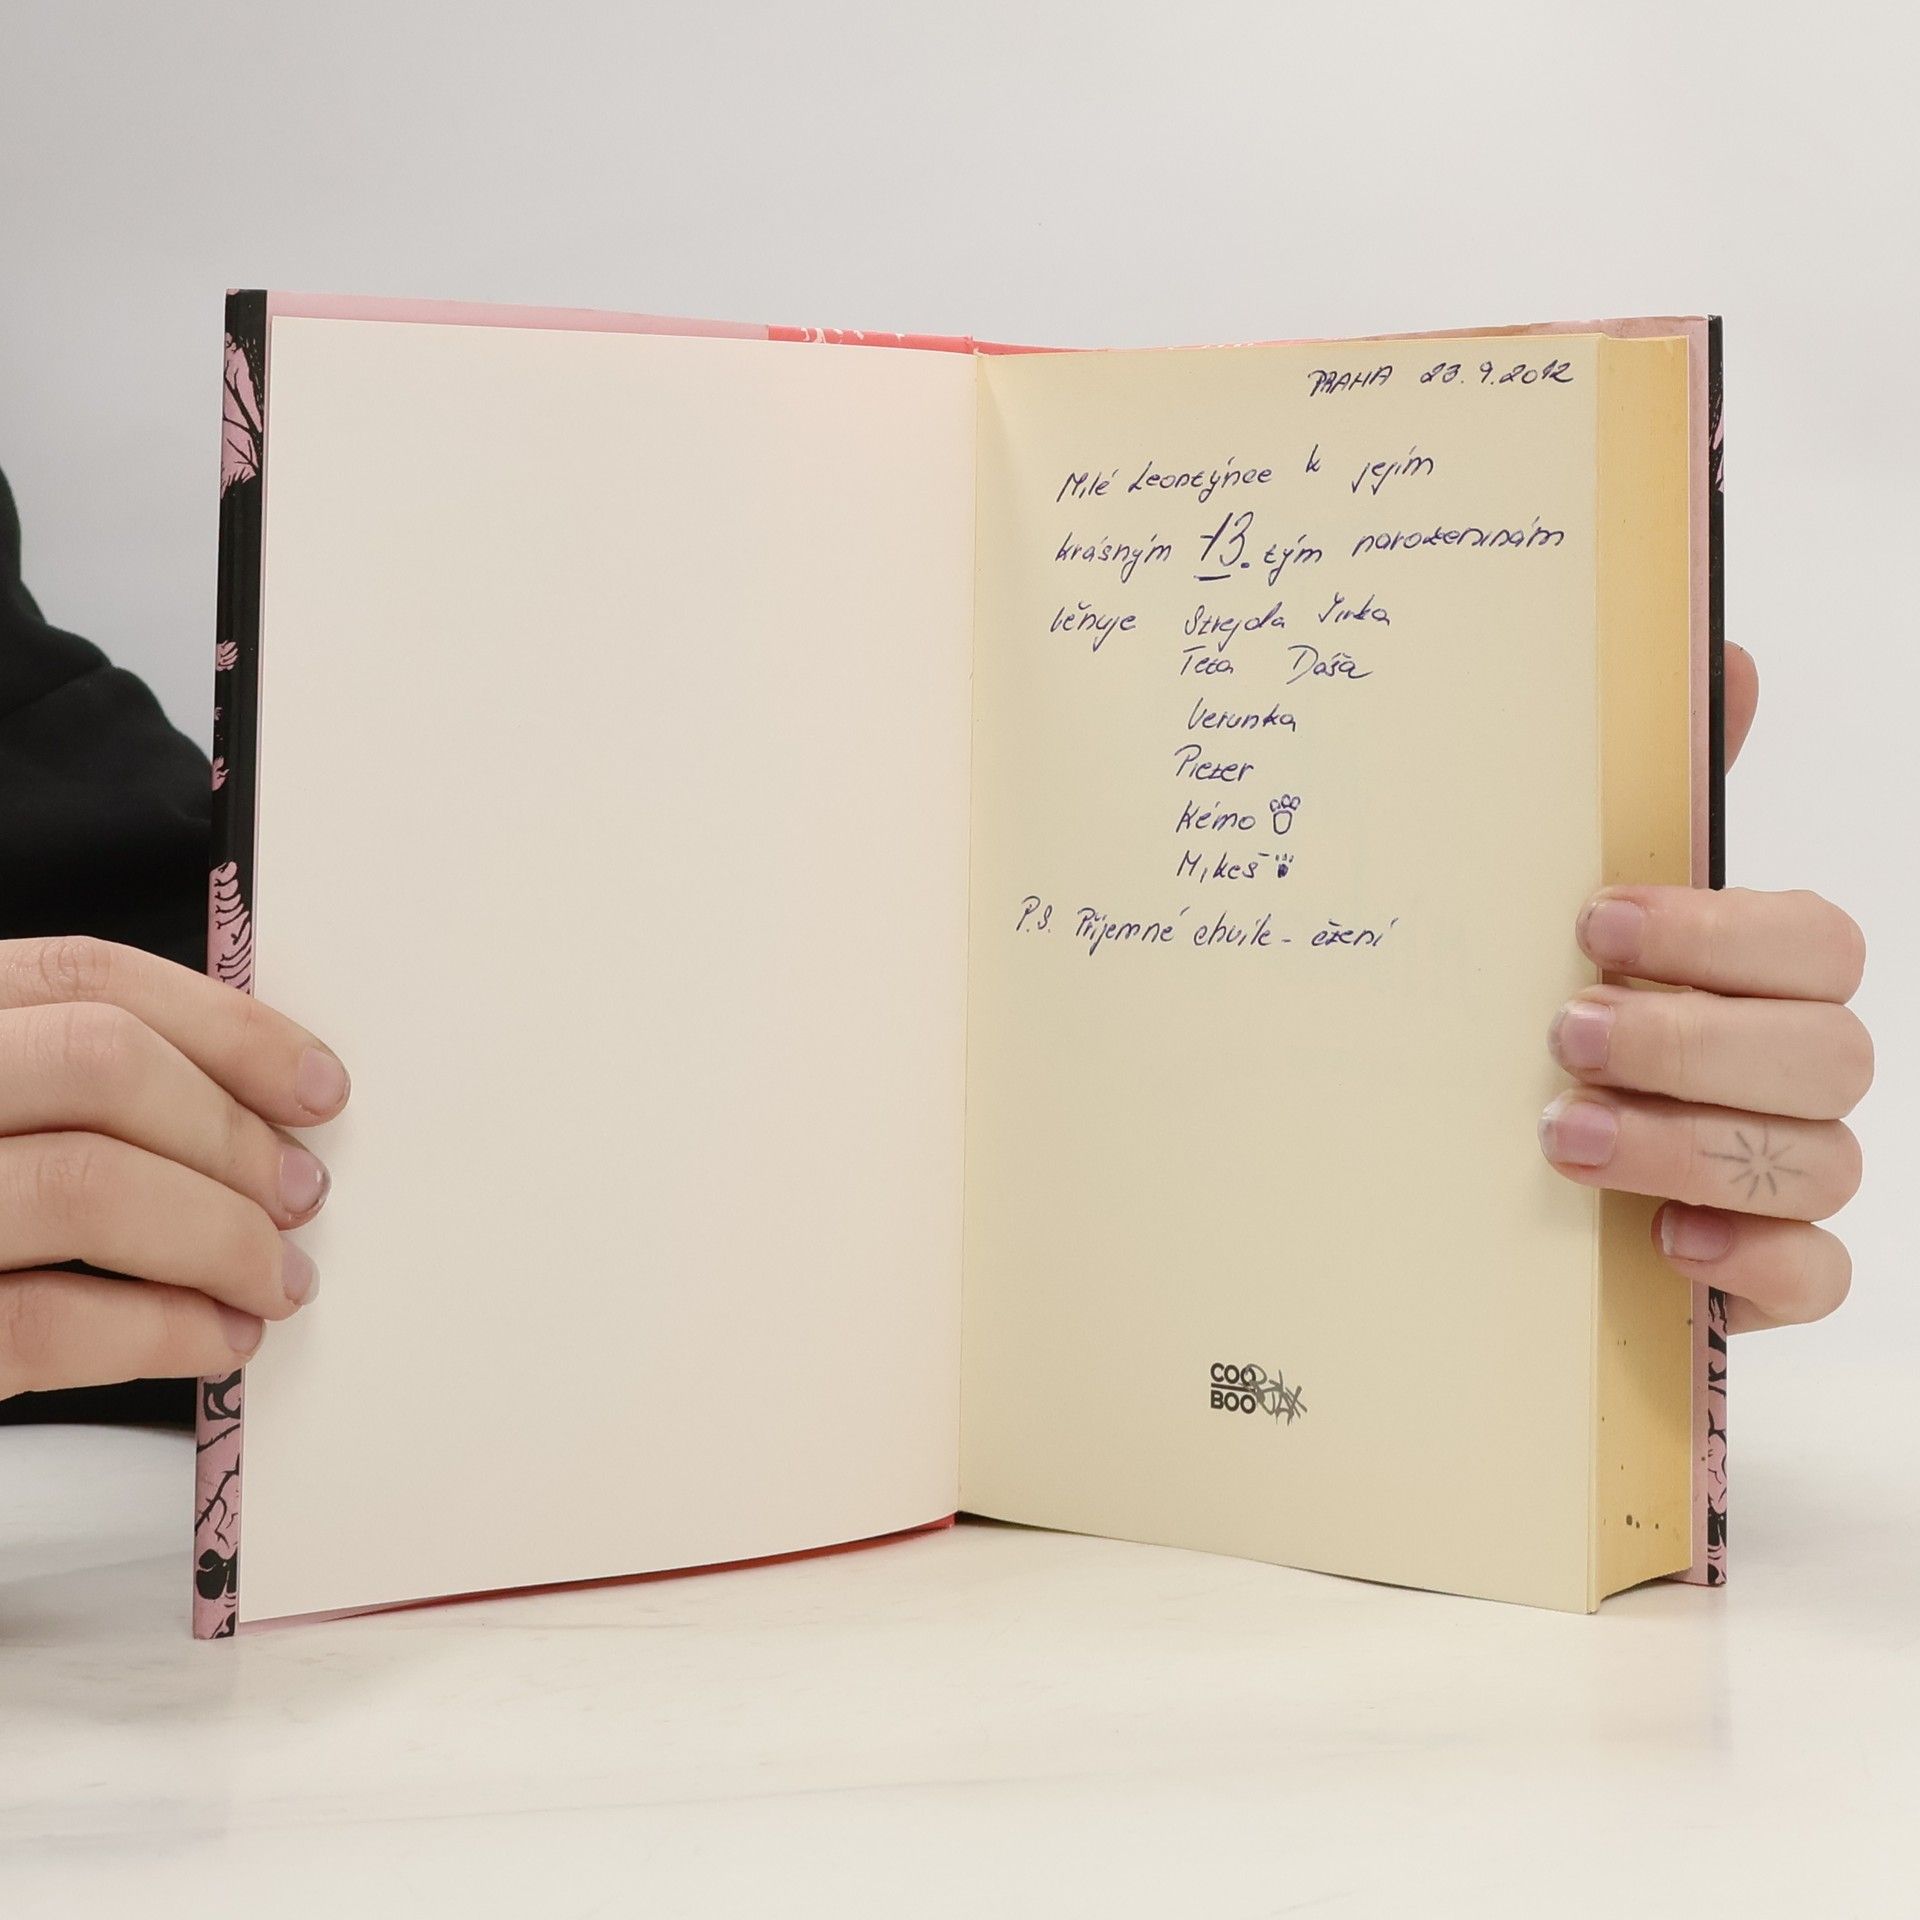 PRAHA 23.9.2012
Milé Leontýnce k jejím
krásným 13.tým narozeninám
věnuje Strejda Jirka
Teta Dáša
Verunka
Pieter
Kémo
Mikeš
P.S. Příjemné chvíle - čtení
COO
BOO